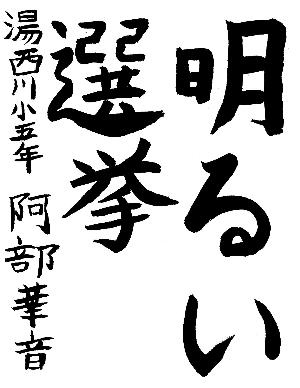 明るい
選挙
湯西川小五年 阿部華音